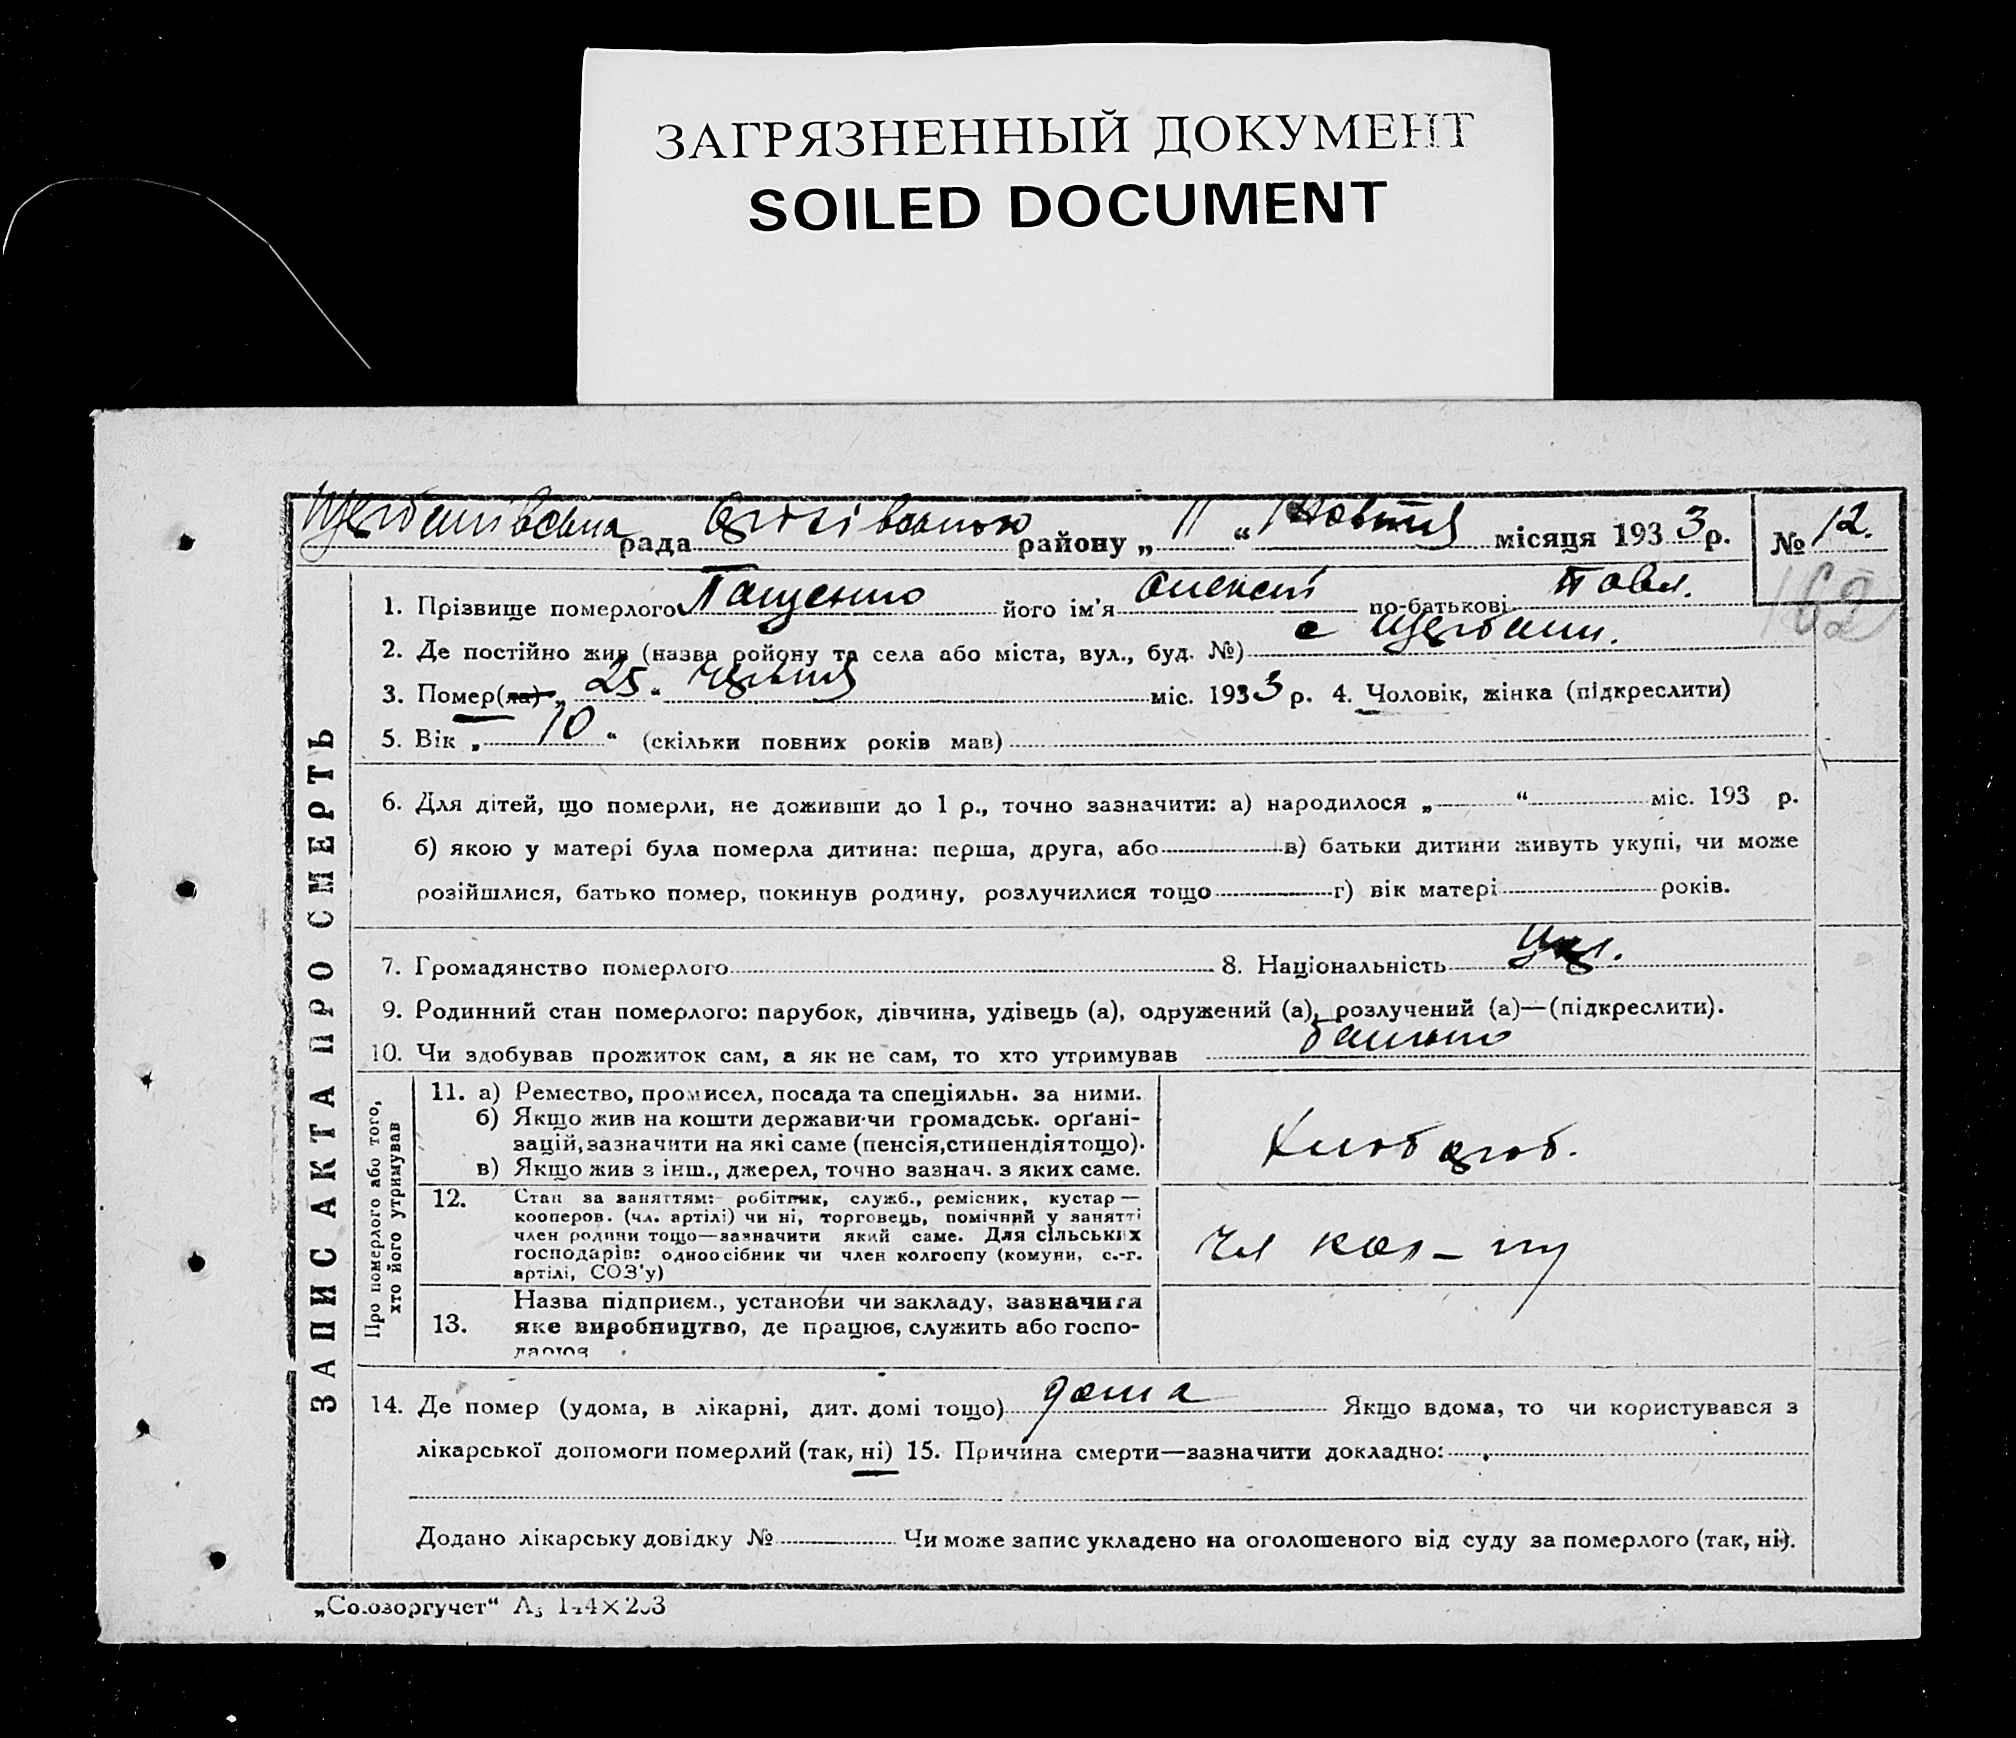 ЗАГРЯЗНЕННЫЙ ДОКУМЕНТ
SOILED DOCUMENT
Щербанівська рада району „ 11 “ Жовтня місяця 1933 р. № 12.
162
ЗАПИС АКТА ПРО СМЕРТЬ
1. Прізвище померлого Пащенко його ім'я Олексій по-батькові Павл.
2. Де постійно жив (назва ройону та села або міста, вул., буд. №) с Щербани.
3. Помер(ла) „ 25 “ червня міс. 1933 р. 4. Чоловік, жінка (підкреслити)
5. Вік „ 10 “ (скільки повних років мав)
6. Для дітей, що померли, не доживши до 1 р., точно зазначити: а) народилося „ “ міс. 193 р.
б) якою у матері була померла дитина: перша, друга, або в) батьки дитини живуть укупі, чи може
розійшлися, батько помер, покинув родину, розлучилися тощо г) вік матері років.
7. Громадянство померлого 8. Національність Укр.
9. Родинний стан померлого: парубок, дівчина, удівець (а), одружений (а), розлучений (а)—(підкреслити).
10. Чи здобував прожиток сам, а як не сам, то хто утримував батько
Про померлого або того,
хто його утримував
11. а) Ремество, промисел, посада та спеціяльн. за ними.
б) Якщо жив на кошти держави чи громадськ. орґані-
зацій, зазначити на які саме (пенсія, стипендія тощо).
в) Якщо жив з інш., джерел, точно зазнач. з яких саме.
Хлібороб.
12. Стан за заняттям: робітник, служб., ремісник, кустар—
кооперов. (чл. артілі) чи ні, торговець, помічний у занятті
член родини тощо—зазначити який саме. Для сільських
господарів: одноосібник чи член колгоспу (комуни, с.-г.
артілі, СОЗ'у)
Чл кол-пу
13. Назва підприєм., установи чи закладу, зазначити
яке виробництво, де працює, служить або госпо-
дарює
14. Де помер (удома, в лікарні, дит. домі тощо) дома Якщо вдома, то чи користувався з
лікарської допомоги померлий (так, ні) 15. Причина смерти—зазначити докладно:
Додано лікарську довідку № Чи може запис укладено на оголошеного від суду за померлого (так, ні).
„Союзоргучет“